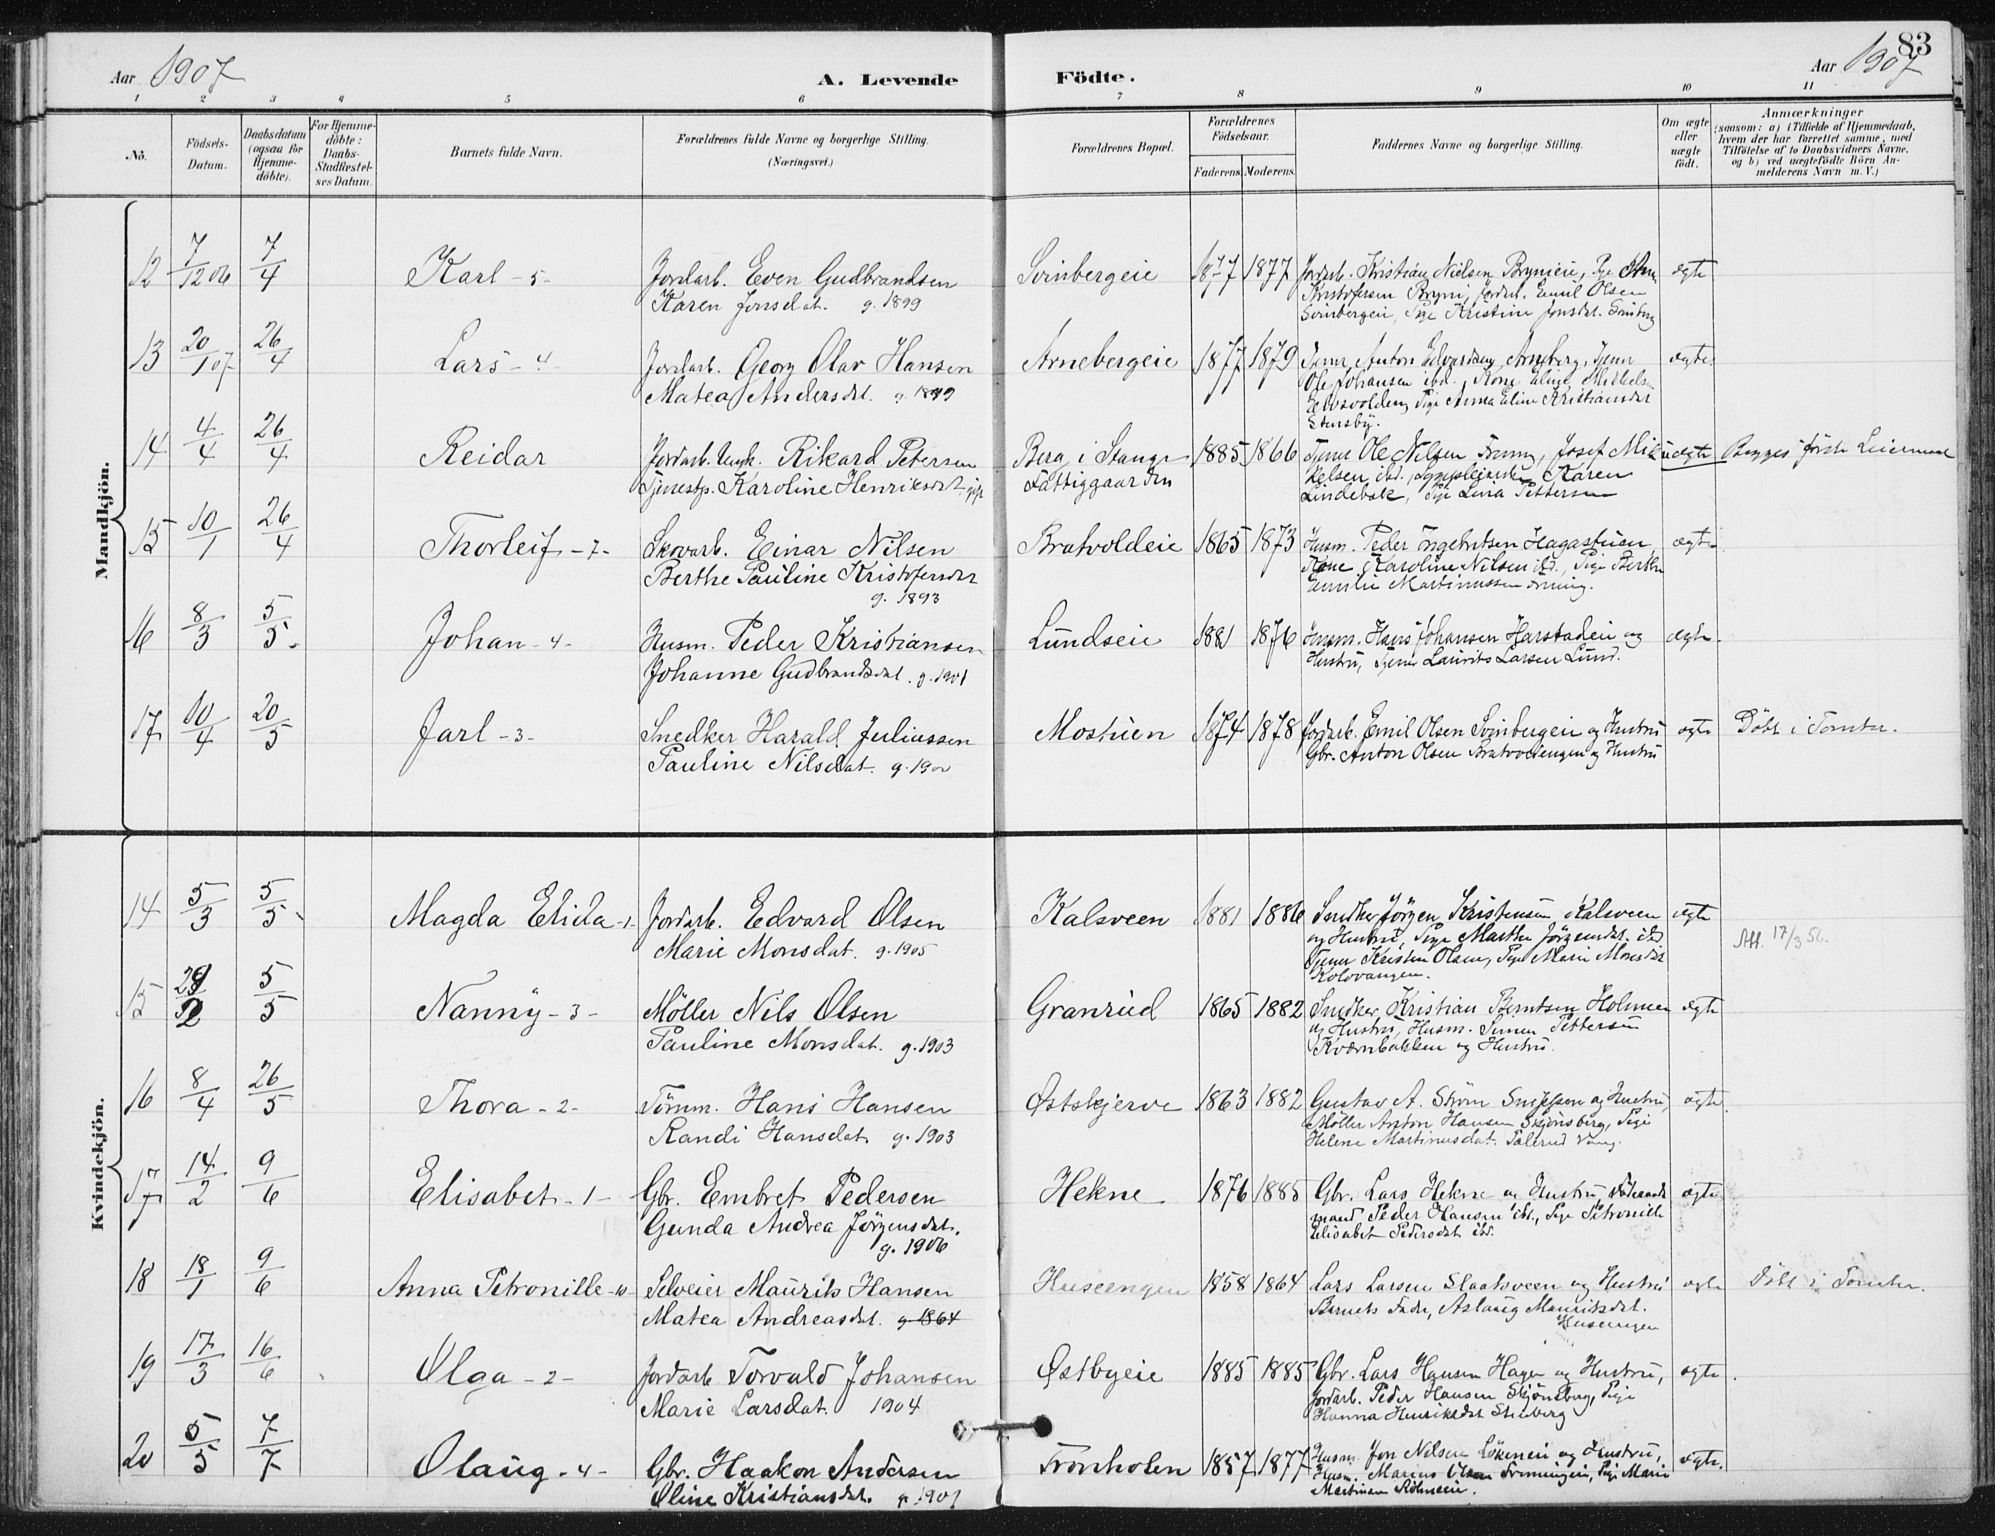 83
Aar 1907
A. Levende Födte.
Aar 1907
1 2 3 4 5 6 7 8 9 10 11
No.
Födsels-Datum.
Daabsdatum (ogsaa for Hjemme-döbte).
For Hjemme-döbte: Daabs-Stadfæstel-ses Datum.
Barnets fulde Navn.
Forældrenes fulde Navne og borgerlige Stilling.
(Næringsvei.)
Forældrenes Bopæl.
Forældrenes Födselsaar.
Faderens Moderens.
Faddernes Navne og borgerlige Stilling.
Om ægte eller uægte födt.
Anmærkninger
(saasom: a) i Tilfælde af Hjemmedaab,
hvem der har forrettet samme, med
Tilföielse af to Daabsvidners Navne,
og b) ved uægtefödte Börn An-
melderens Navn m. V.)
Mandkjön.
12 7/12 06 7/4 Karl - 5 - Jordarb. Even Gudbrandsen Svinbergeie 1877 1877 Jordarb. Kristian Nielsen Brynieie, Pige ægte
Karen Jonsdat. g. 1899 Kristofersen Bryni, Jordarb. Emil Olsen
Svinbergeie, Pige Kristine Jonsdat. Svinberg
13 20/1 07 26/4 Lars - 4 - Jordarb. Georg Olav Hansen Arnebergeie 1877 1879 Tjener Anton Edvardsen Arneberg, Tjener ægte
Matea Andersdat. g. 1899 Ole Johansen ibd., Kone
Pige Anna Eline Kristiansdat
Stensby.
14 4/4 26/4 Reidar Jordarb. Ungk. Rikard Petersen Berg i Stange 1885 1866 Tjener Ole Nilsen Tronn, Josef Mik uægte Begges förste Leiermaal
Tjenestp. Karoline Henriksdat gift Fattiggaarden kelsen ibd., Karen
Lindebak, Pige Lina Pettersen
15 10/1 26/4 Thorleif - 7 - Skovarb. Einar Nilsen Bratvoldeie 1865 1873 Husm. Peder Engebretsen Hagastuen ægte
Berthe Pauline Kristofersdat Kone Karoline Nilsen ibd., Pige Berthe
g. 1893 Emilie Martinussen
16 8/3 5/5 Johan - 4 - Husm. Peder Kristiansen Lundseie 1881 1876 Husm. Hans Johansen Harstadeie og ægte
Johanne Gudbrandsdat. g. 1901 Hustru, Tjener Laurits Larsen Lund.
17 10/4 20/5 Jarl - 3 - Snedker Harald Juliussen Mostuen 1874 1878 Jordarb. Emil Olsen Svinbergeie og Hustru ægte Döbt i Tomter.
Pauline Nilsdat. g. 1900 Gbr. Anton Olsen Bratvoldengen og Hustru
Kvindekjön.
14 5/3 5/5 Magda Elida - 1 - Jordarb. Edvard Olsen Kalsveen 1881 1886 Snedker Jörgen Kristensen Kalsveen ægte
Marie Monsdat. g. 1905 og Hustru, Pige Marthe Jörgensdat. ibd Att. 17/3 56.
Tjener Kristen Olsen, Pige Marie Monsdat
Kolovangen.
15 5/5 Nanny - 3 - Möller Nils Olsen Granrud 1865 1882 Snedker Kristian Berntsen Holmen ægte
Pauline Monsdat. g. 1903 og Hustru, Husm. Simen Pettersen
Kværnbakken og Hustru.
16 8/4 26/5 Thora - 2 - Tömm. Hans Hansen Østskjerve 1863 1882 Gustav A. Ström og Hustru, ægte
Randi Hansdat g. 1903 Möller Anton Hansen Skjönsberg, Pige
Helene Martinusdat. Vang.
17 14/2 9/6 Elisabet - 1 - Gbr. Embret Pedersen Hekne 1876 1885 Gbr. Lars Hekne og Hustru, Föderaads ægte
Gunda Andrea Jörgensdat. mand Peder Hansen ibd., Pige Petronille
g. 1906 Elisabet Pedersdat ibd.
18 18/1 9/6 Anna Petronille - 10 Selveier Maurits Hansen Huseengen 1858 1864 Lars Larsen Slaatsveen og Hustru ægte Döbt i Tomter.
Matea Andreasdat. g. 1864 Barnets Fader, Aslaug Mauritsdat.
Huseengen
19 17/3 16/6 Olga - 2 - Jordarb Torvald Johansen Østbyeie 1885 1885 Gbr. Lars Hansen Hagen og Hustru, ægte
Marie Larsdat. 1904 Jordarb. Peder Hansen Skjönsberg, Pige
Hanna Henriksdat Stenberg
20 5/5 7/7 Olaug - 4 - Gbr. Haakon Andersen Tronholen 1857 1877 Husm. Jon Nilsen Lökeneie og Hustru, ægte.
Oline Kristiansdat. g. 1901 Husm. Marius Olsen Tronningeie, Pige Marie
Martinsen